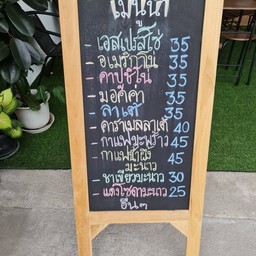 เมนูโก้
- เอสเปรสโซ่ 35
- อเมริกาโน 35
- คาปูชิโน่ 35
- มอคค่า 35
- ลาเต้ 35
- คาราเมลลาเต้ 40
- กาแฟมะพร้าว 45
- กาแฟน้ำผึ้ง 45
มะนาว
- ชาเขียวมะนาว 30
- แดงโซดามะนาว 25
อื่นๆ